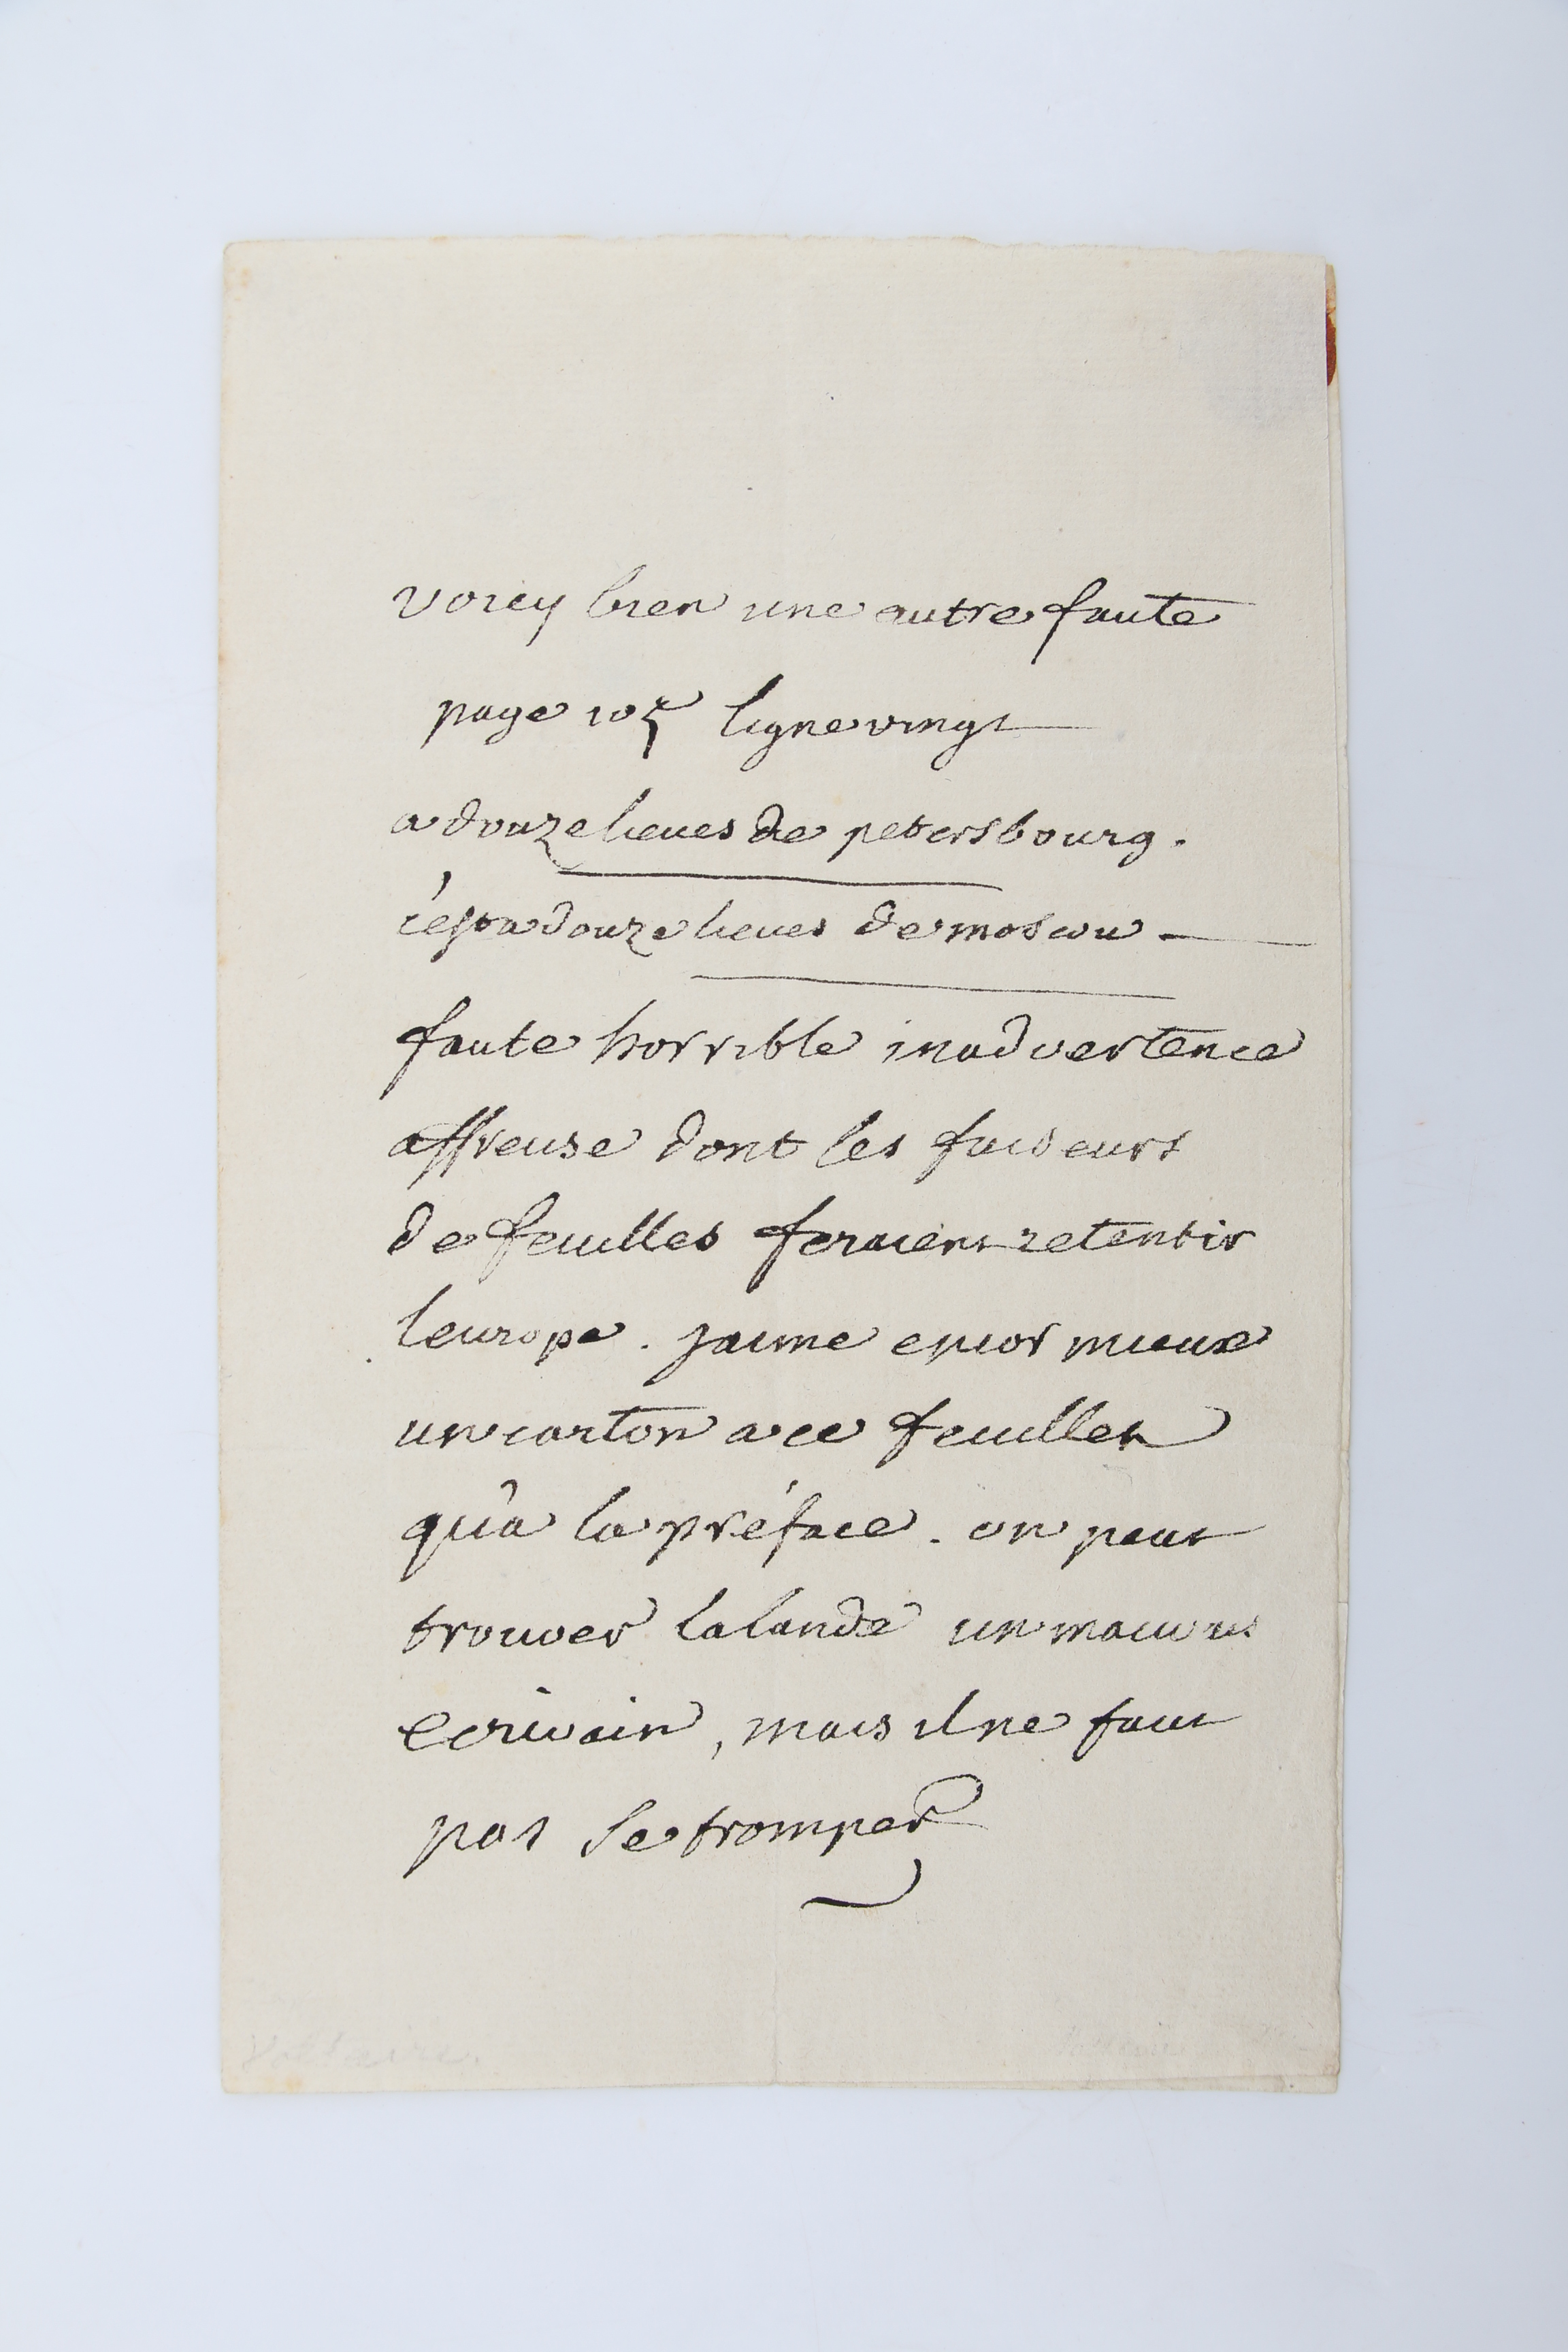 voicy bien une autre faute
page 105 ligne vingt
a douze lieues de petersbourg.
c'est a douze lieues de moscou -
faute horrible inadvertence
affreuse dont les faiseurs
de feuilles feraient retentir
leurope. jaime encor mieux
un carton a ce feuillet
qu'a la préface. on peut
trouver lalande un mauvais
ecrivain, mais il ne faut
pas se tromper
Voltaire.